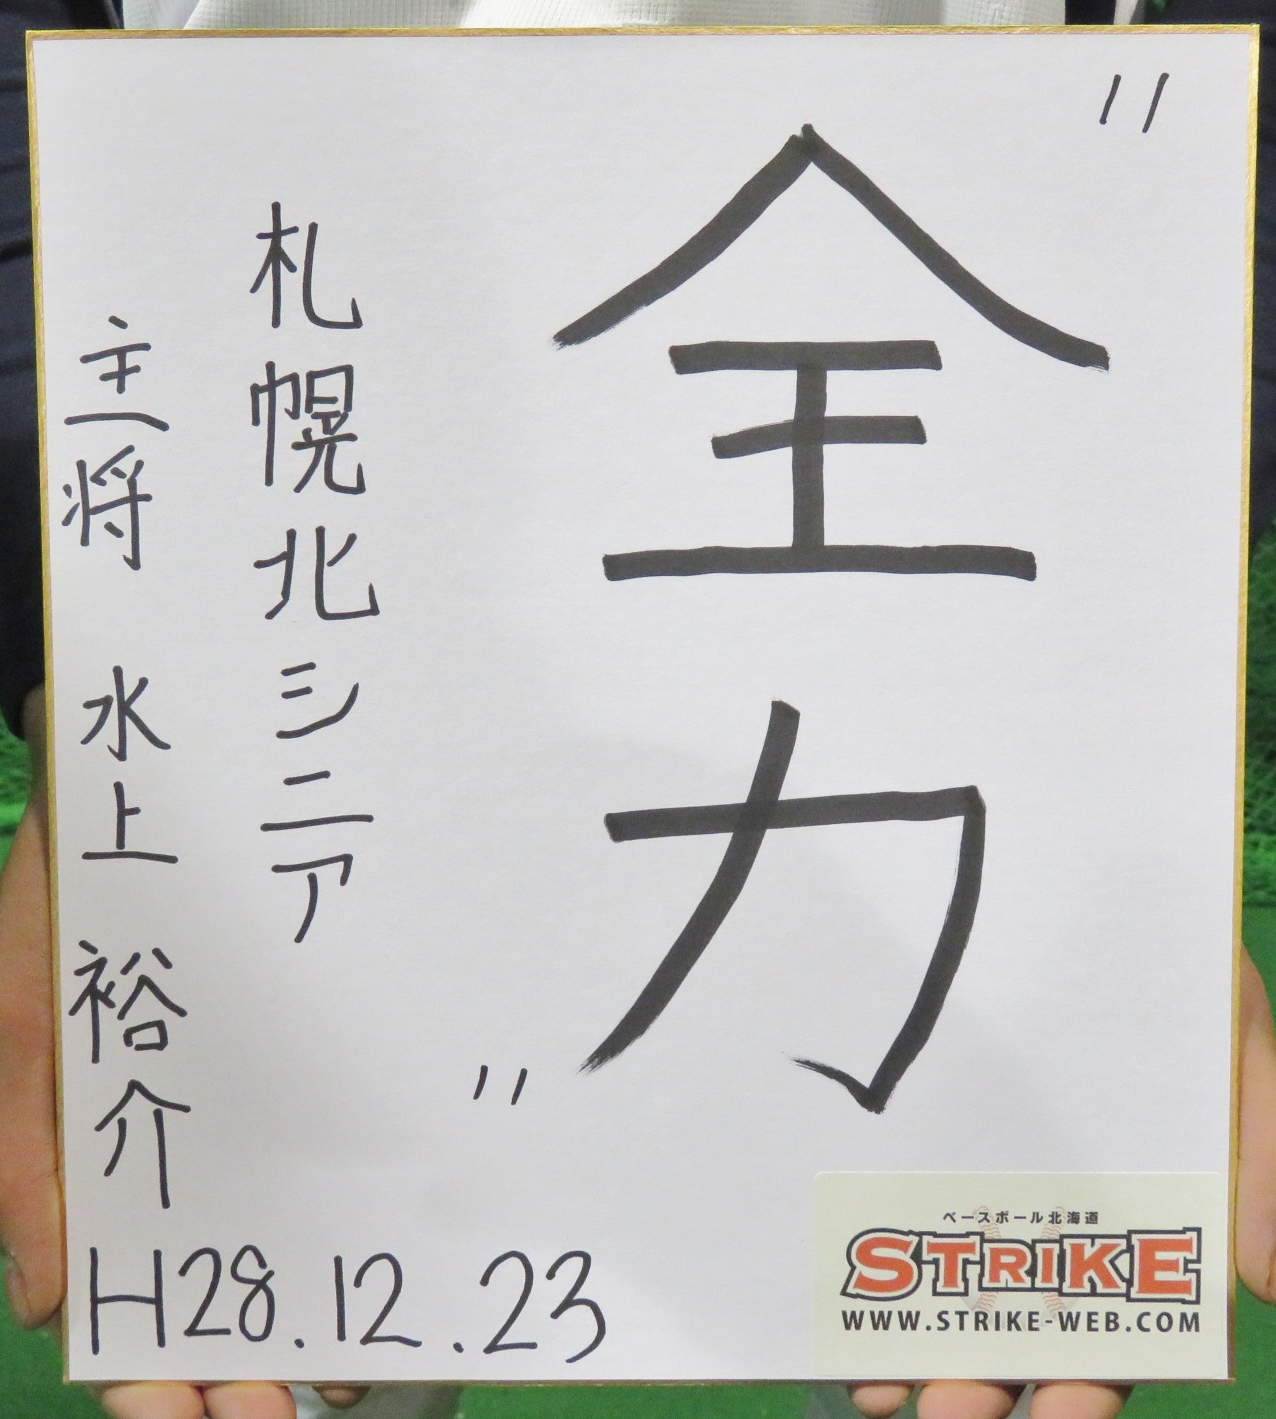 "全力"
札幌北シニア
主将 水上 裕介
H28.12.23
ベースボール北海道
STRIKE
WWW.STRIKE-WEB.COM